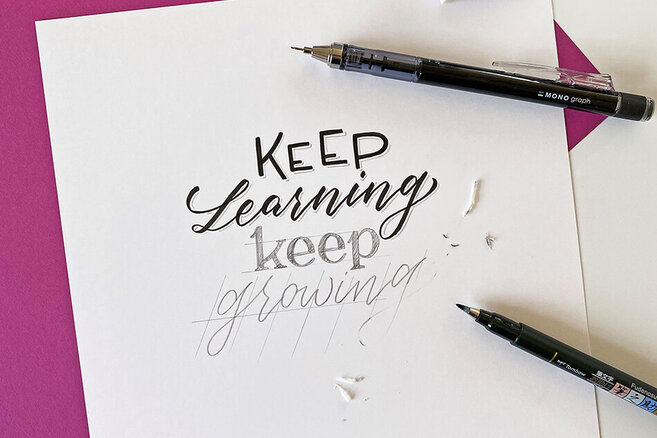 KEEP
Learning
keep
growing
MONO graph
Tombow
Fudenosuke
筆文字